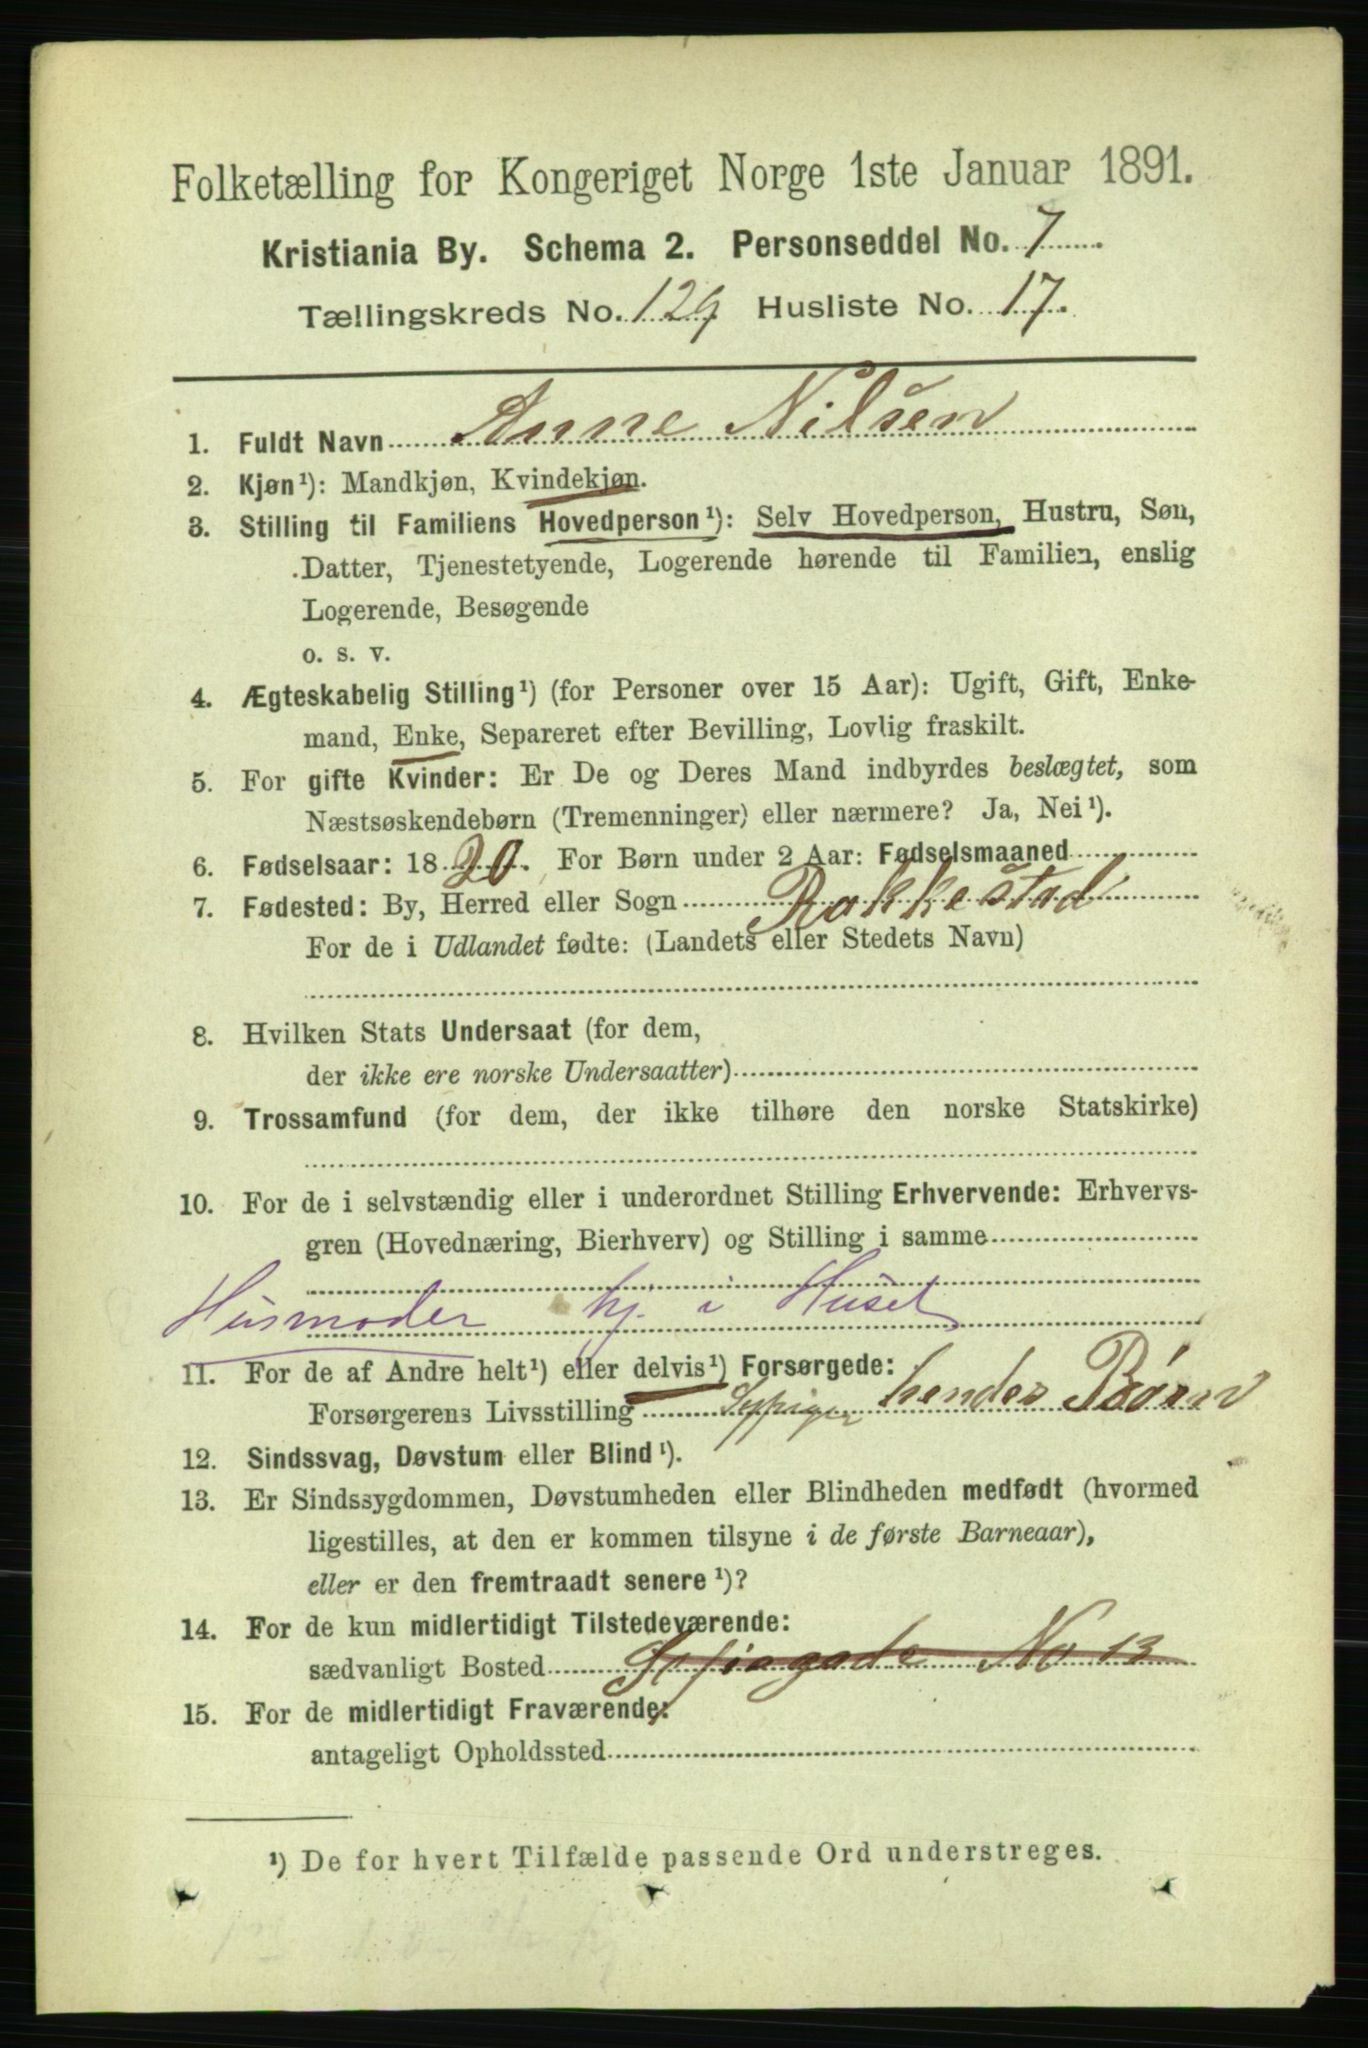 Folketælling for Kongeriget Norge 1ste Januar 1891.
Kristiania By. Schema 2. Personseddel No. 7
Tællingskreds No. 129 Husliste No. 17.
1. Fuldt Navn Anne Nilsen
2. Kjøn¹): Mandkjøn, Kvindekjøn.
3. Stilling til Familiens Hovedperson¹): Selv Hovedperson, Hustru, Søn,
Datter, Tjenestetyende, Logerende hørende til Familien, enslig
Logerende, Besøgende
o. s. v.
4. Ægteskabelig Stilling¹) (for Personer over 15 Aar): Ugift, Gift, Enke-
mand, Enke, Separeret efter Bevilling, Lovlig fraskilt.
5. For gifte Kvinder: Er De og Deres Mand indbyrdes beslægtet, som
Næstsøskendebørn (Tremenninger) eller nærmere? Ja, Nei¹).
6. Fødselsaar: 1820. For Børn under 2 Aar: Fødselsmaaned
7. Fødested: By, Herred eller Sogn Rakkestad
For de i Udlandet fødte: (Landets eller Stedets Navn)
8. Hvilken Stats Undersaat (for dem,
der ikke ere norske Undersaatter)
9. Trossamfund (for dem, der ikke tilhøre den norske Statskirke)
10. For de i selvstændig eller i underordnet Stilling Erhvervende: Erhvervs-
gren (Hovednæring, Bierhverv) og Stilling i samme
Husmoder hj. i Huset
11. For de af Andre helt¹) eller delvis¹) Forsørgede:
Forsørgerens Livsstilling Sypiger hendes Børn
12. Sindssvag, Døvstum eller Blind¹).
13. Er Sindssygdommen, Døvstumheden eller Blindheden medfødt (hvormed
ligestilles, at den er kommen tilsyne i de første Barneaar),
eller er den fremtraadt senere¹)?
14. For de kun midlertidigt Tilstedeværende:
sædvanligt Bosted Sofiagade No 13
15. For de midlertidigt Fraværende:
antageligt Opholdssted
¹) De for hvert Tilfælde passende Ord understreges.